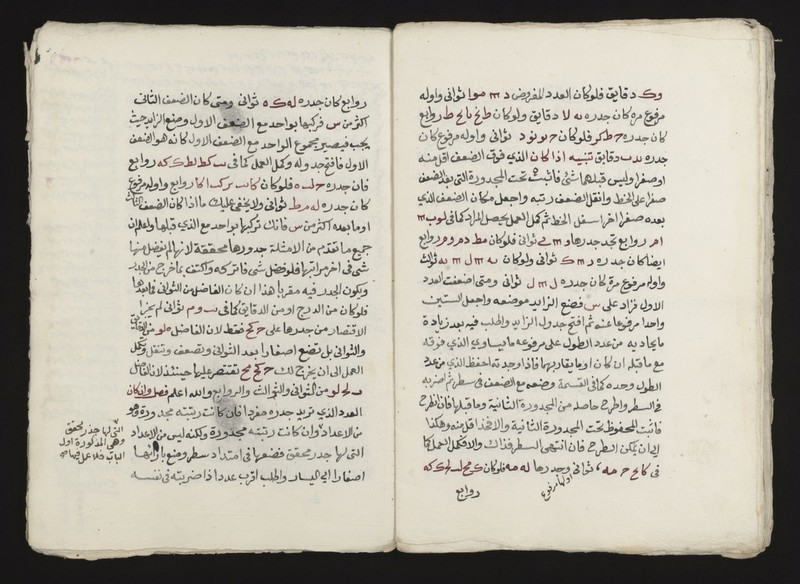 وك دقايق فلوكان العدد المفروض د م موا ثوانى واوله
مرفوع مرة كان جدره به لا دقايق ولوكان طخ نا مح ط روابع
كان جدره ح ط كر فلوكان ح يو يو د ثوانى واوله مرفوع كان
جدره ند ب دقايق تنبيه اذا كان الذى فوق الضعف اقل منه
اوصفرا وليس قبلهما شئ فاثبت تحت المجدورة التى بعد الضعف
صفرا على الخط وانقل الضعف رتبه واجعل مكان الضعف الذى
بعده صفرا اخر اسفل الخط ثم كمل العمل يحصل المراد كما فى
روابع تجد جدرها ثوانى فلوكان مط دم دم روابع
ايضا كان جدره ر م ك ثوانى ولوكان به م ل م يه ثوالث
واوله مرفوع مرة كان جدره ل م ل ثوانى ومتى اضعفت العدد
الاول فزاد على س فضع الزايد موضعه واجعل الستين
واحدا مرفوعا عنه ثم افتح جدول الزايد واطلب فيه بعد زيادة
ما يجاديه من عدد الطول على مرفوعه ما يساوى الذى فوقه
مع ما قبله ان كان او ما يقاربهما فاذا وجدته احفظ الذى من عدد
الطول وحده كما فى القسمة وضعه مع الضعف فى سطر ثم اضربه
فى السطر واطرح حاصله من المجدورة الثانية وما قبلها فان انطرح
فاثبت المحفوظ تحت المجدورة الثانية والا فخذ اقل منه وهكذا
الى ان يمكن الطرح فان انتهى السطر فذاك والا فكمل العمل كما
فى كا مح ح مه ثوانى وجدرها له مه فلوكان
اولها مرفوع
روابع
روابع كان جدره له ك ه ثوانى ومتى كان الضعف الثانى
اكثر من س فركبها بواحد مع الضعف الاول وضع الزايد حيث
يجب فيصير مجموع الواحد مع الضعف الاول كانه هو الضعف
الاول فافتح جدوله وكمل العمل كما فى ب كط لط ك كه روابع
فان جدره ح ل ه فلوكان روابع واوله مرفوع
كان جدره له م ط ثوانى ولا يخفى عليك ما اذا كان الضعف الثالث
او ما بعده اكثر من س فانك تركبها بواحد مع الذى قبلها واعلم ان
جميع ما تقدم من الامثلة جدورها محققة لانها لم يفضل منها
شى فى اخر مراتبها فلو فضل شى فاتركه واكتف بما خرج من الجدر
ويكون الجدر فيه مقربا هذا ان كان الفاضل من الثوانى فما بعدها
فلوكان من الدرج او من الدقايق كما فى ب و م ثوانى لم يجز
الاقتصار من جدرها على ح كح فقط لان الفاضل ملو من الدقايق
والثوانى بل تضع اصفارا بعد الثوانى وتضعف وتنقل وتكمل
العمل الى ان يخرج لك ح كح مح فتقتصر عليها حينئذ لان الفاضل
ب لح لو من الثوانى والثوالث والروابع والله اعلم فصل وان كان
العدد الذى تريد جدره مفردا فان كانت رتبته مجدورة فهو
من الاعداد وان كانت رتبته مجدورة ولكنه ليس من الاعداد
التى لها جدر محقق فضعها فى امتداد سطر وضع بازائها
اصفارا الى اليسار واطلب اقرب عدد اذا ضربته فى نفسه
التى لها جذر محقق
وهى المذكورة اول
الباب فلا عمل فيها